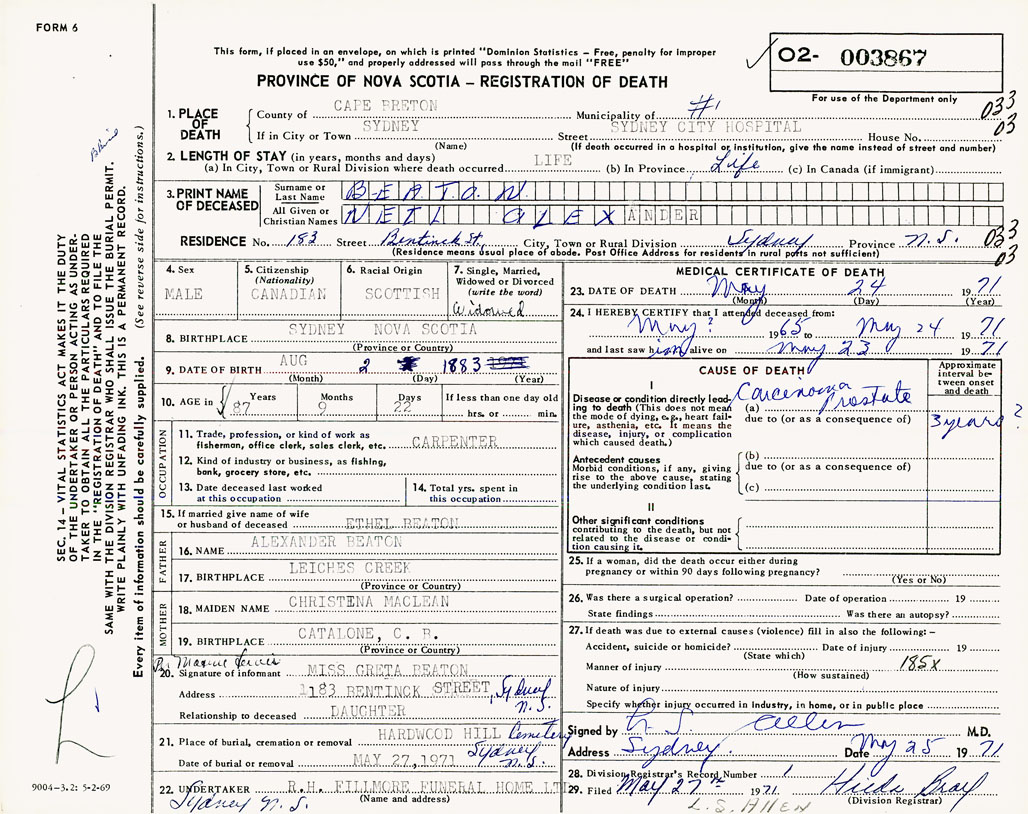 FORM 6
This form, if placed in an envelope, on which is printed "Dominion Statistics – Free, penalty for improper
use $50," and properly addressed will pass through the mail "FREE"
O2- 003867
PROVINCE OF NOVA SCOTIA – REGISTRATION OF DEATH
For use of the Department only
1. PLACE OF DEATH
County of CAPE BRETON Municipality of #1 033
If in City or Town SYDNEY Street SYDNEY CITY HOSPITAL House No. 03
(Name) (If death occurred in a hospital or institution, give the name instead of street and number)
2. LENGTH OF STAY (in years, months and days)
(a) In City, Town or Rural Division where death occurred LIFE (b) In Province Life (c) In Canada (if immigrant)
3. PRINT NAME OF DECEASED
Surname or Last Name BEATON
All Given or Christian Names NEIL ALEXANDER
RESIDENCE No. 183 Street Bentinck St. City, Town or Rural Division Sydney Province N.S. 033
(Residence means usual place of abode. Post Office Address for residents in rural parts not sufficient) 03
4. Sex
MALE
5. Citizenship
(Nationality)
CANADIAN
6. Racial Origin
SCOTTISH
7. Single, Married,
Widowed or Divorced
(write the word)
Widowed
8. BIRTHPLACE SYDNEY NOVA SCOTIA
(Province or Country)
9. DATE OF BIRTH AUG 2 1883
(Month) (Day) (Year)
10. AGE in Years Months Days If less than one day old
87 9 22 hrs. or min.
OCCUPATION
11. Trade, profession, or kind of work as
fisherman, office clerk, sales clerk, etc. CARPENTER
12. Kind of industry or business, as fishing,
bank, grocery store, etc.
13. Date deceased last worked
at this occupation
14. Total yrs. spent in
this occupation
15. If married give name of wife
or husband of deceased ETHEL BEATON
FATHER
16. NAME ALEXANDER BEATON
17. BIRTHPLACE LEICHES CREEK
(Province or Country)
MOTHER
18. MAIDEN NAME CHRISTENA MACLEAN
19. BIRTHPLACE CATALONE, C. B.
(Province or Country)
20. Signature of informant MISS GRETA BEATON
Address 1183 BENTINCK STREET, Sydney N.S.
Relationship to deceased DAUGHTER
21. Place of burial, cremation or removal HARDWOOD HILL Cemetery
Sydney N.S.
Date of burial or removal MAY 27,1971
22. UNDERTAKER R.H. FILLMORE FUNERAL HOME LTD
(Name and address)
Sydney N.S.
MEDICAL CERTIFICATE OF DEATH
23. DATE OF DEATH May 24 1971
(Month) (Day) (Year)
24. I HEREBY CERTIFY that I attended deceased from:
May ? 1965 to May 24 1971
and last saw him alive on May 23 1971
CAUSE OF DEATH
Approximate
interval be-
tween onset
and death
I
Disease or condition directly lead-
ing to death (This does not mean
the mode of dying, e.g., heart fail-
ure, asthenia, etc. It means the
disease, injury, or complication
which caused death.)
(a) Carcinoma Prostate
due to (or as a consequence of)
3 years ?
Antecedent causes
Morbid conditions, if any, giving
rise to the above cause, stating
the underlying condition last.
(b)
due to (or as a consequence of)
(c)
II
Other significant conditions
contributing to the death, but not
related to the disease or condi-
tion causing it.
25. If a woman, did the death occur either during
pregnancy or within 90 days following pregnancy?
(Yes or No)
26. Was there a surgical operation? Date of operation 19
State findings Was there an autopsy?
27. If death was due to external causes (violence) fill in also the following: –
Accident, suicide or homicide? Date of injury 19
(State which)
Manner of injury 185X
(How sustained)
Nature of injury
Specify whether injury occurred in industry, in home, or in public place
Signed by L. S. Allen M.D.
Address Sydney. Date May 25 1971
28. Division Registrar's Record Number 1
29. Filed May 27th 1971
(Division Registrar)
L.S. ALLEN
SEC. 14 – VITAL STATISTICS ACT MAKES IT THE DUTY
OF THE UNDERTAKER OR PERSON ACTING AS UNDER-
TAKER TO OBTAIN ALL THE PARTICULARS REQUIRED
IN THE "REGISTRATION OF DEATH" AND TO FILE THE
SAME WITH THE DIVISION REGISTRAR WHO SHALL ISSUE THE BURIAL PERMIT.
WRITE PLAINLY WITH UNFADING INK. THIS IS A PERMANENT RECORD.
Every item of information should be carefully supplied. (See reverse side for instructions.)
9004-3.2: 5-2-69